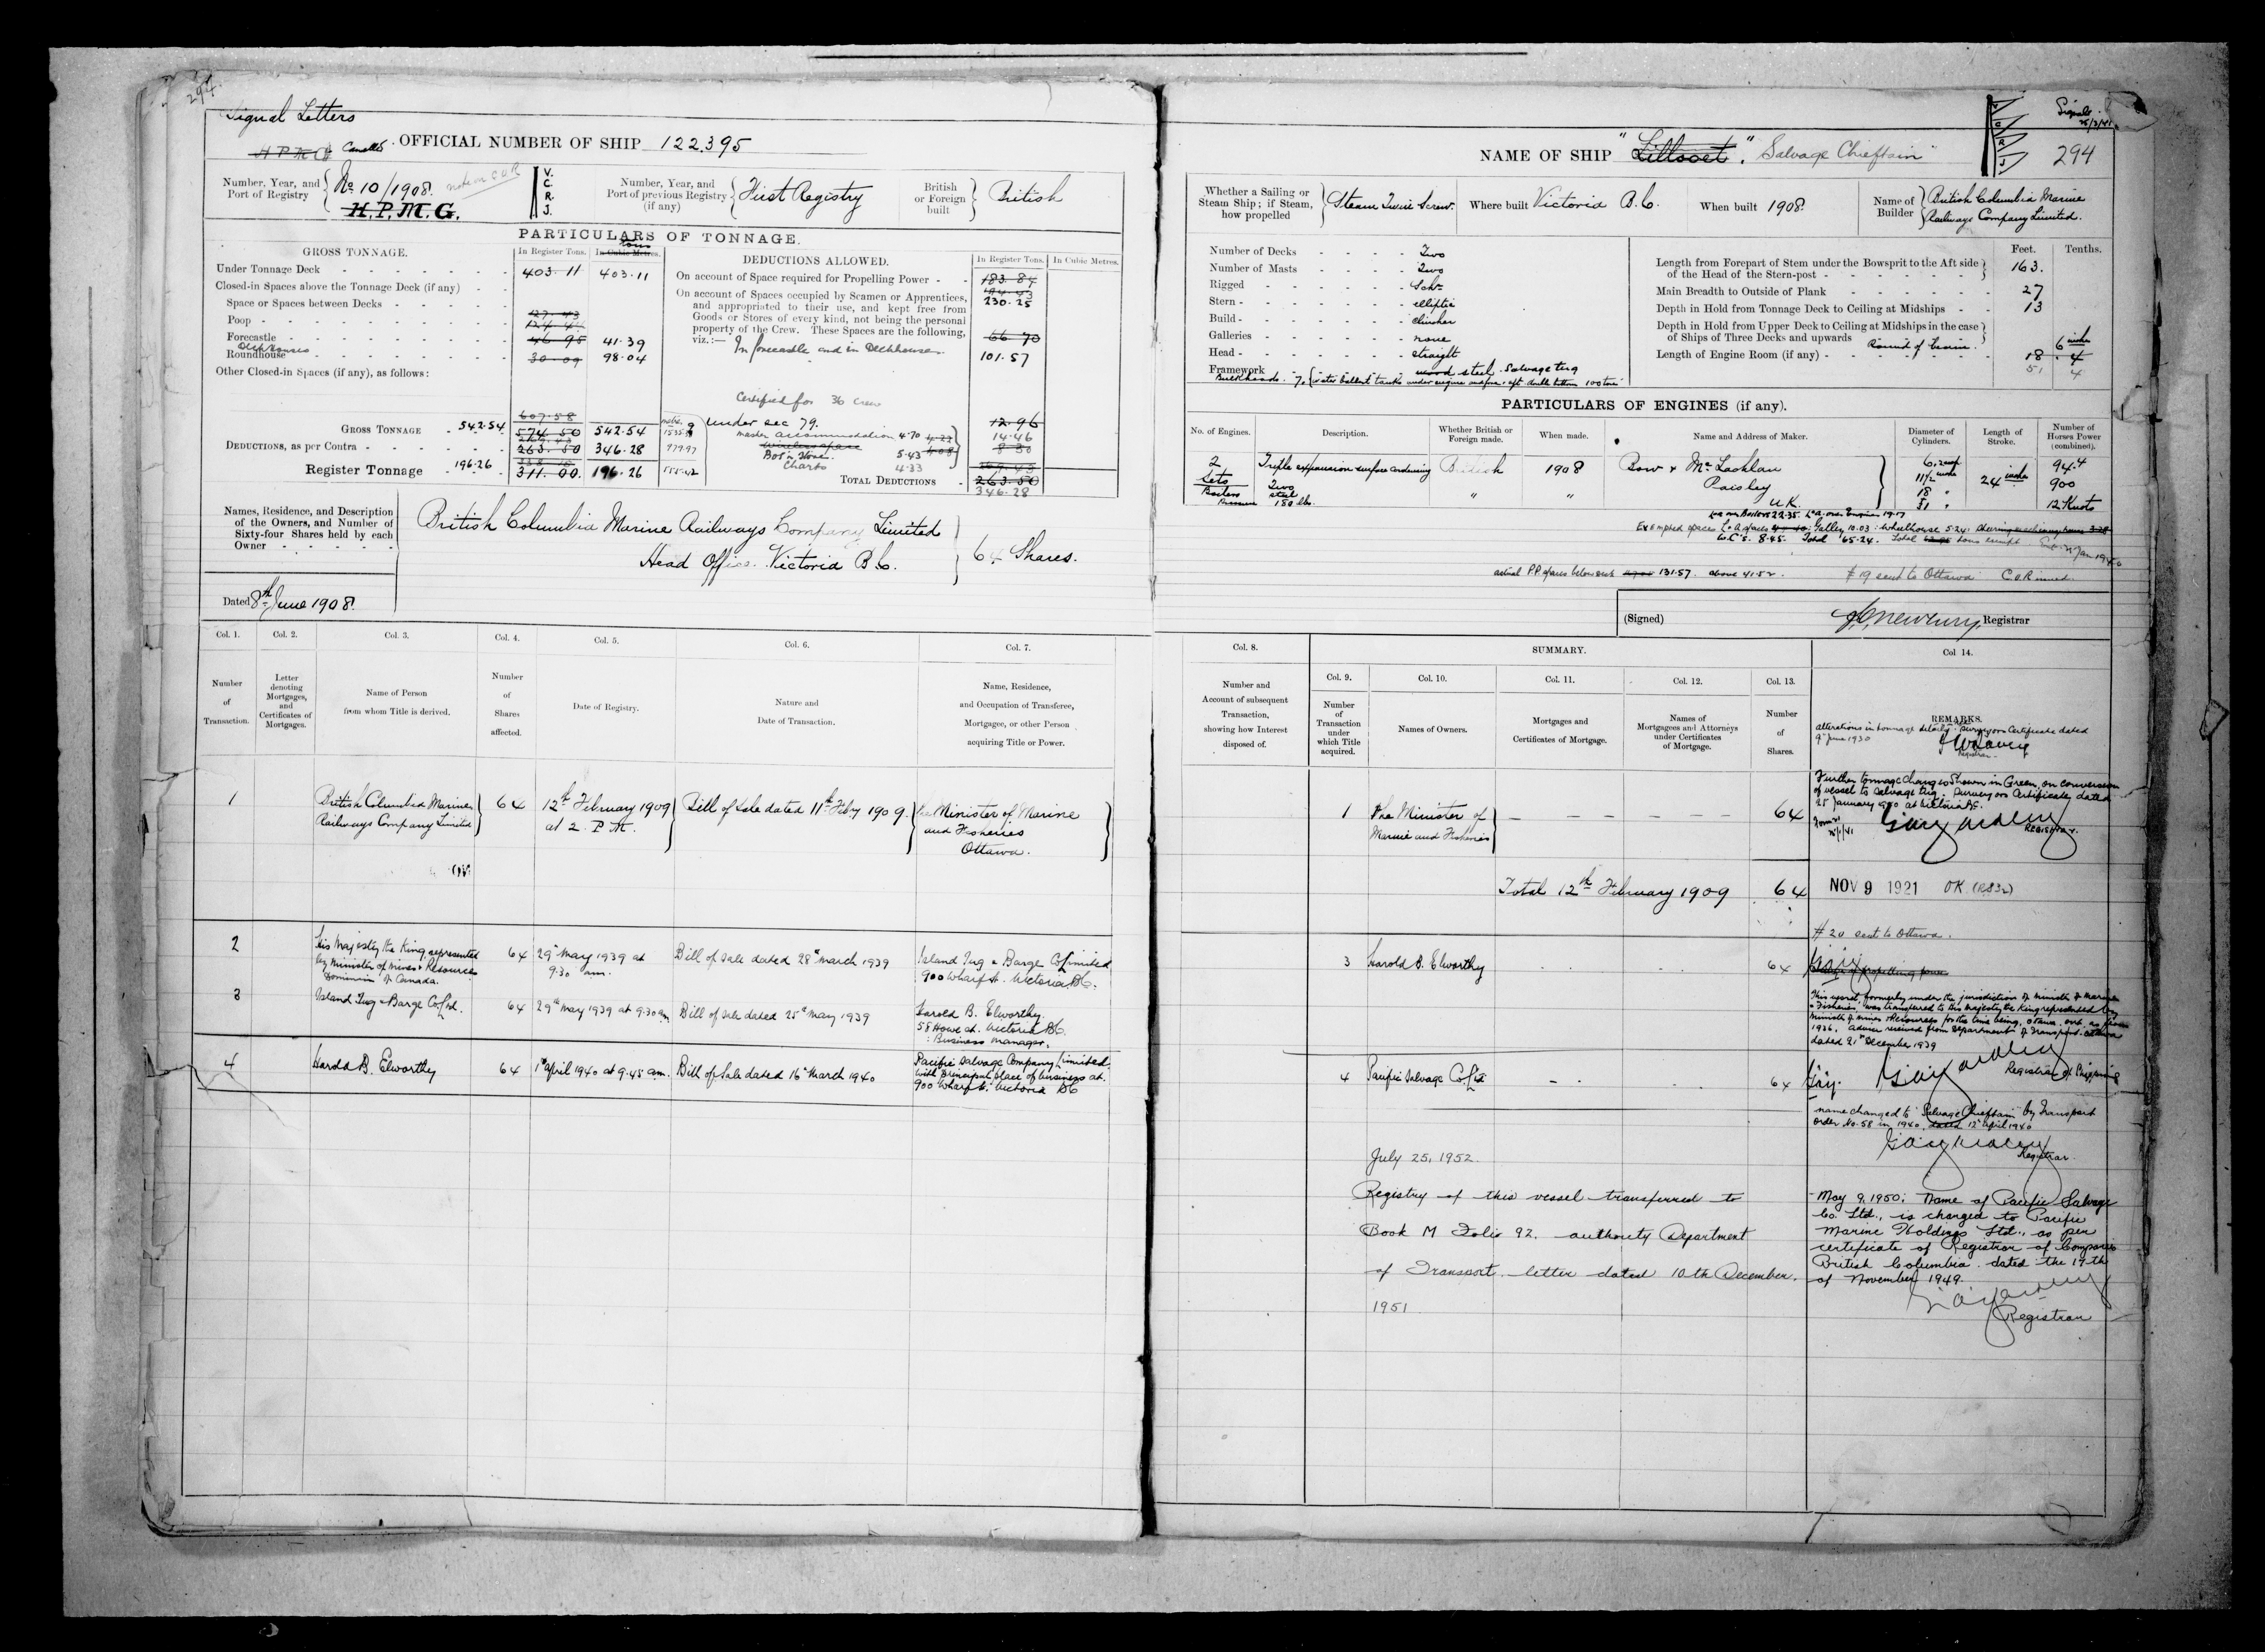 294.
Signal Letters
H P M G Cancelled OFFICIAL NUMBER OF SHIP 122,395
Number, Year, and Port of Registry No 10/1908.
H.P.M.G.
V. C. R. J.
Number, Year, and Port of previous Registry (if any) First Registry
British or Foreign built British
PARTICULARS OF TONNAGE.
GROSS TONNAGE.
In Register Tons.
In Cubic Metres.
tons
Under Tonnage Deck 403.11 403.11
Closed-in Spaces above the Tonnage Deck (if any)
Space or Spaces between Decks
Poop
Forecastle 46.95 41.39
Roundhouse Deckhouses 30.09 98.04
Other Closed-in Spaces (if any), as follows:
607.58
GROSS TONNAGE 542.54 574.50 542.54
DEDUCTIONS, as per Contra 263.50 346.28
Register Tonnage 196.26 311.00. 196.26
DEDUCTIONS ALLOWED.
In Register Tons.
In Cubic Metres.
On account of Space required for Propelling Power 183.84
230.25
On account of Spaces occupied by Seamen or Apprentices,
and appropriated to their use, and kept free from
Goods or Stores of every kind, not being the personal
property of the Crew. These Spaces are the following,
viz.:— 66.70
In forecastle and in Deckhouses. 101.57
Certified for 36 crew
under sec 79. 12.96
master accommodation 4.70 14.46
Bos'n Stores 5.43 4.08
Charts 4.33
TOTAL DEDUCTIONS 263.50
346.28
Names, Residence, and Description
of the Owners, and Number of
Sixty-four Shares held by each
Owner
British Columbia Marine Railways Company Limited
Head Office. Victoria B.C. 64 Shares.
Dated 8th June 1908.
Col. 1. Col. 2. Col. 3. Col. 4. Col. 5. Col. 6. Col. 7.
Number of Transaction.
Letter denoting Mortgages, and Certificates of Mortgages.
Name of Person from whom Title is derived.
Number of Shares affected.
Date of Registry.
Nature and Date of Transaction.
Name, Residence, and Occupation of Transferee, Mortgagee, or other Person acquiring Title or Power.
1 British Columbia Marine Railways Company Limited 64 12th February 1909 at 2 P.M. Bill of Sale dated 11th Feby 1909. The Minister of Marine and Fisheries Ottawa.
2 His Majesty the King represented by Minister of Mines & Resources Dominion of Canada. 64 29th May 1939 at 9.30 am. Bill of sale dated 28th March 1939 Island Tug & Barge Co Limited 900 Wharf st. Victoria BC.
3 Island Tug & Barge Co Ltd. 64 29th May 1939 at 9.30 am Bill of sale dated 25th May 1939 Harold B. Elworthy. 58 Howe st. Victoria BC. : Business manager.
4 Harold B. Elworthy 64 1st April 1940 at 9.45 am. Bill of Sale dated 16th March 1940 Pacific Salvage Company Limited. with principal place of business at 900 Wharf st. Victoria BC
NAME OF SHIP "Lillooet". "Salvage Chieftain"
Signals
V C R J
294
Whether a Sailing or Steam Ship; if Steam, how propelled Steam Twin Screw.
Where built Victoria B.C.
When built 1908.
Name of Builder British Columbia Marine Railways Company Limited.
Number of Decks Two
Number of Masts Two
Rigged Schr
Stern elliptic
Build clincher
Galleries none
Head straight
Framework wood steel. Salvage tug
Bulkheads. 7.
Feet. Tenths.
Length from Forepart of Stem under the Bowsprit to the Aft side of the Head of the Stern-post 163.
Main Breadth to Outside of Plank 27
Depth in Hold from Tonnage Deck to Ceiling at Midships 13
Depth in Hold from Upper Deck to Ceiling at Midships in the case of Ships of Three Decks and upwards
Round of beam. 6 inches
Length of Engine Room (if any) 18 . 4
51 4
PARTICULARS OF ENGINES (if any).
No. of Engines.
Description.
Whether British or Foreign made.
When made.
Name and Address of Maker.
Diameter of Cylinders.
Length of Stroke.
Number of Horses Power (combined).
2 Sets Triple expansion surface condensing British 1908 Bow & McLachlan Paisley U.K. 24 inches 94.4
900
12 Knots
Boilers Two steel " "
Pressure 180 lbs.
Galley 10.03 : Wheelhouse 5.24.
W.C's. 8.45. Total 65.24.
131.57. above 41.52.
# 19 sent to Ottawa C.O.R issued
(Signed) Registrar
Col. 8.
SUMMARY.
Col. 9. Col. 10. Col. 11. Col. 12. Col. 13. Col 14.
Number and Account of subsequent Transaction, showing how Interest disposed of.
Number of Transaction under which Title acquired.
Names of Owners.
Mortgages and Certificates of Mortgage.
Names of Mortgagees and Attorneys under Certificates of Mortgage.
Number of Shares.
REMARKS.
alterations in tonnage details. Surveyors Certificate dated
9th June 1930
Registrar
Further tonnage changes shown in Green, on conversion
of vessel to salvage tug. Surveyors Certificate dated
25 January 1940 at Victoria BC.
REGISTRAR.
1 The Minister of Marine and Fisheries — — — — — 64
Total 12th February 1909 64
NOV 9 1921 OK
# 20 sent to Ottawa.
3 Harold B. Elworthy 64
This vessel formerly under the jurisdiction of Minister of Marine
& Fisheries, was transferred to His Majesty the King represented by
Minister of Mines & Resources for the time being, Ottawa, Ont. as from
1936. Advice received from Department of Transport. Ottawa
dated 21st December 1939
Registrar of Shipping
4 Pacific Salvage Co Ltd 64
name changed to "Salvage Chieftain" by Transport
Order No. 58 in 1940 dated 12th April 1940
Registrar.
July 25, 1952.
Registry of this vessel transferred to
Book M Folio 92. authority Department
of Transport letter dated 10th December.
1951
May 9, 1950: Name of Pacific Salvage
Co. Ltd., is changed to Pacific
Marine Holdings Ltd., as per
certificate of Registrar of Companies
British Columbia dated the 17th
of November 1949.
Registrar